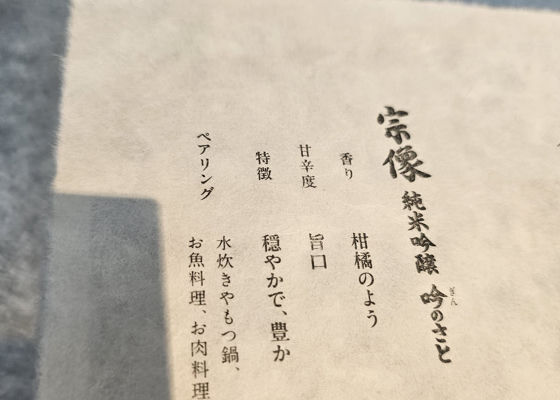 宗像 純米吟醸 吟のさと
ぎん
香り 柑橘のよう
甘辛度 旨口
特徴 穏やかで、豊か
ペアリング 水炊きやもつ鍋、
お魚料理、お肉料理